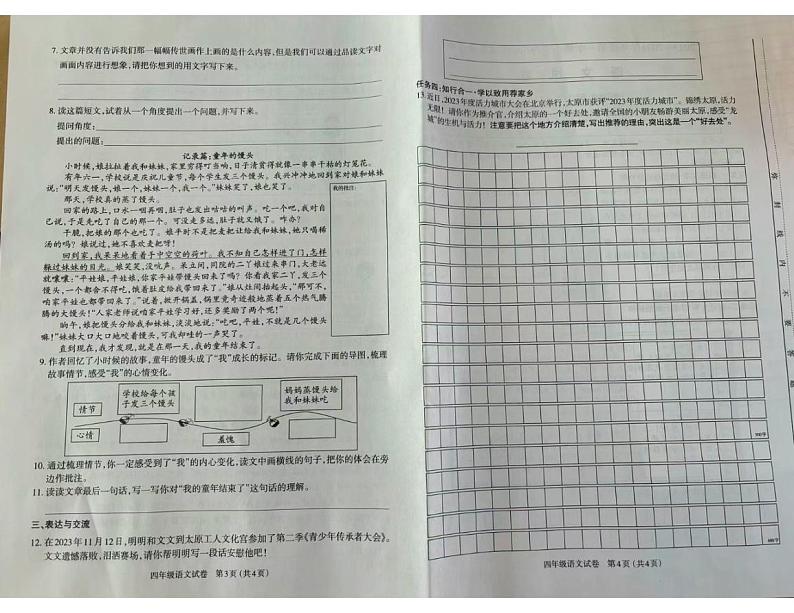 7. 文章并没有告诉我们那一幅幅传世画作上画的是什么内容,但是我们可以通过品读文字对
画面内容进行想象,请把你想到的用文字写下来。
8. 读这篇短文,试着从一个角度提出一个问题,并写下来。
提问角度:
提出的问题:
记录篇:童年的馒头
小时候,娘拉扯着我和妹妹,家里穷得叮当响,日子清贫得就像一串串干枯的灯笼花。
有年六一,学校说是庆祝儿童节,每个学生发三个馒头。我兴冲冲地回到家对娘和妹妹
说:“明天发馒头,娘一个,妹妹一个,我一个。”妹妹笑了,娘也笑了。
那天,学校真的蒸了馒头。
回家的路上,口水一咽再咽,肚子也发出咕咕的叫声。吃一个吧,我对自
己说,于是先吃了自己的那一个。可没走多远,肚子就又饿了。咋办?
干脆,把娘的那个也吃了。娘平时不是把麦粑让给我和妹妹,她只喝稀
汤的吗?娘说过,她不喜欢麦粑呀!
回到家,我呆呆地看着手中空空的荷叶。我不知自己怎样进了门,怎样
躲过妹妹的目光。娘笑笑,没吭声。呆立间,同院的二丫娘过来串门,大老远
就嚷嚷:“平娃娘,平娃娘,你家平娃带馒头回来了吗?你看我家二丫,发三个
馒头,一个都舍不得吃,饿着肚皮给我带回来了。”娘从灶间抬起头,“那可不,
咱家平娃也都带回来了。”说着,掀开锅盖,锅里竟奇迹般地蒸着五个热气腾
腾的大馒头!“人家老师说咱家平娃学习好,还多奖励了两个呢!”
晌午,娘把馒头分给我和妹妹,淡淡地说:“吃吧,平娃,不就是几个馒头
嘛!”妹妹大口大口地咬着馒头,可我却哇的一声哭了。
直到现在,我才发现,就是在那一天,我的童年结束了。
我的批注:
9. 作者回忆了小时候的故事,童年的馒头成了“我”成长的标记。请你完成下面的导图,梳理
故事情节,感受“我”的心情变化。
情节
学校给每个孩
子发三个馒头
妈妈蒸馒头给
我和妹妹吃
心情
羞愧
10. 通过梳理情节,你一定感受到了“我”的内心变化,读文中画横线的句子,把你的体会在旁
边作批注。
11. 读读文章最后一句话,写一写你对“我的童年结束了”这句话的理解。
三、表达与交流
12. 在2023年11月12日,明明和文文到太原工人文化宫参加了第二季《青少年传承者大会》。
文文遗憾落败,泪洒赛场,请你帮明明写一段话安慰他吧!
四年级语文试卷 第3页(共4页)
任务四:知行合一·学以致用荐家乡
13. 近日,2023年度活力城市大会在北京举行,太原市获评“2023年度活力城市”。锦绣太原,活力
无限!请你作为推介官,介绍太原的一个好去处,邀请全国的小朋友畅游美丽太原,感受“龙
城”的生机与活力!注意要把这个地方介绍清楚,写出推荐的理由,突出这是一个“好去处”。
300字
400字
四年级语文试卷 第4页(共4页)
密
封
线
内
不
要
答
题